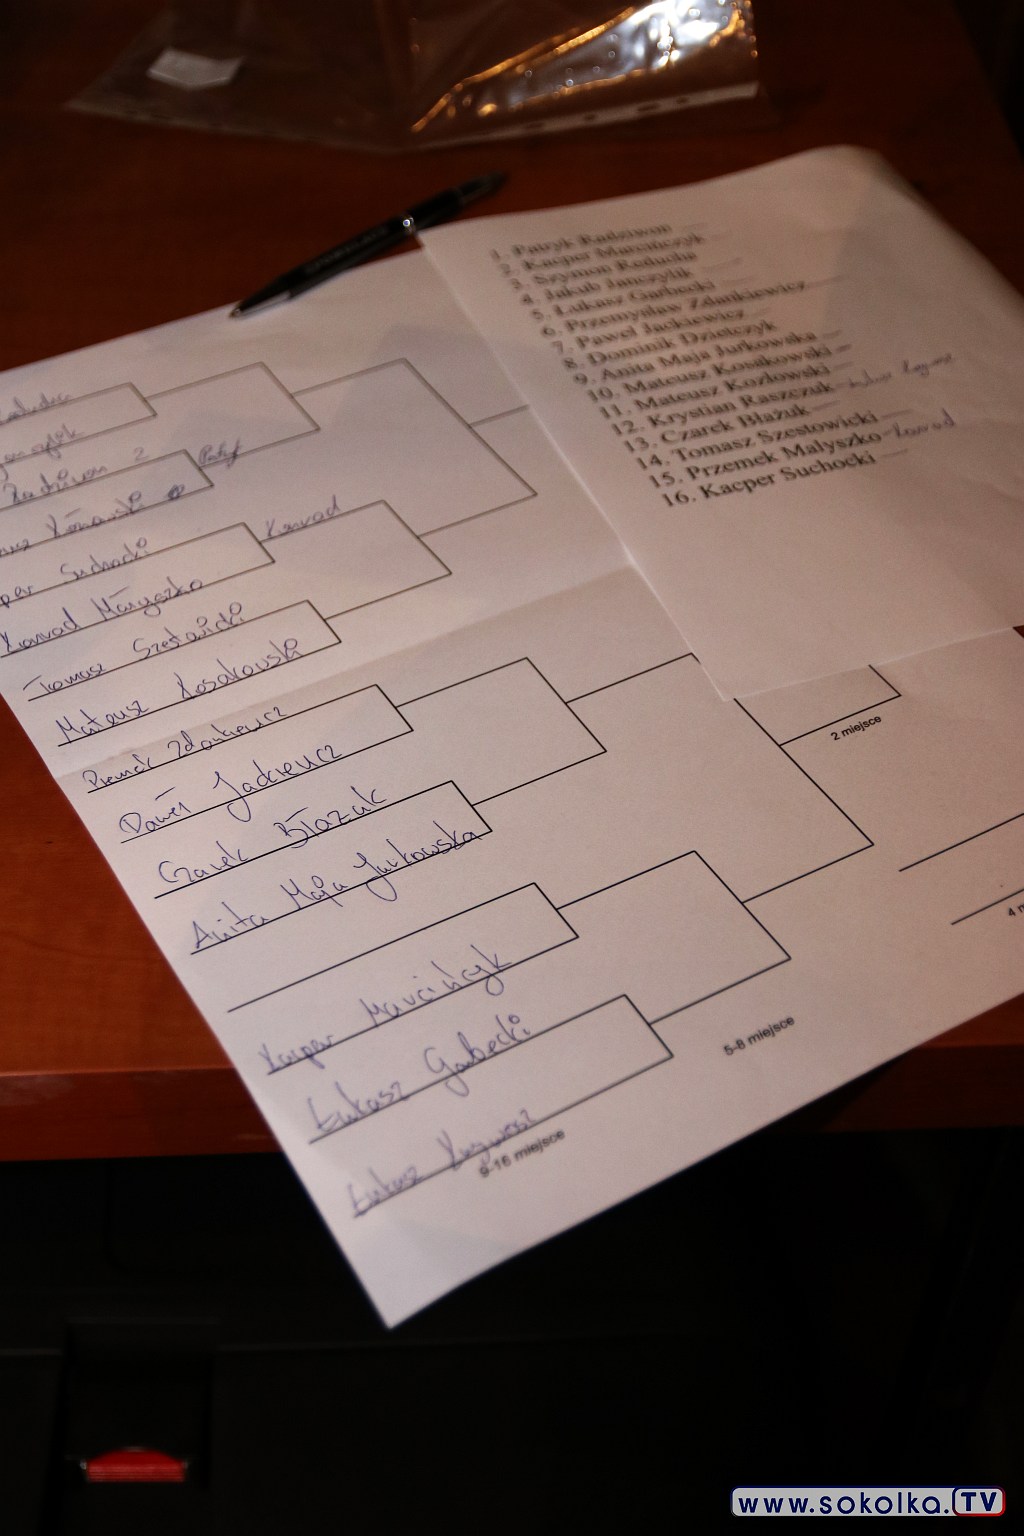 1. Patryk Radziwon
2. Kacper Marcińczyk
3. Szymon Reducha
4. Jakub Janczylik
5. Łukasz Garbecki
6. Przemysław Zdankiewicz
7. Paweł Jackiewicz
8. Dominik Dzietczyk
9. Anita Maja Jurkowska
10. Mateusz Kosakowski
11. Mateusz Kozłowski
12. Krystian Raszczuk
13. Czarek Błażuk
14. Tomasz Szestowicki
15. Przemek Małyszko - Konrad
16. Kacper Suchocki
Radziwon 2
Patryk
Suchocki
Konrad
Konrad Małyszko
Tomasz Szestowicki
Mateusz Kosakowski
Przemek Zdankiewicz
Paweł Jackiewicz
Czarek Błażuk
Anita Maja Jurkowska
Kacper Marcińczyk
Łukasz Garbecki
Łukasz
2 miejsce
4
5-8 miejsce
9-16 miejsce
www.sokolka.TV